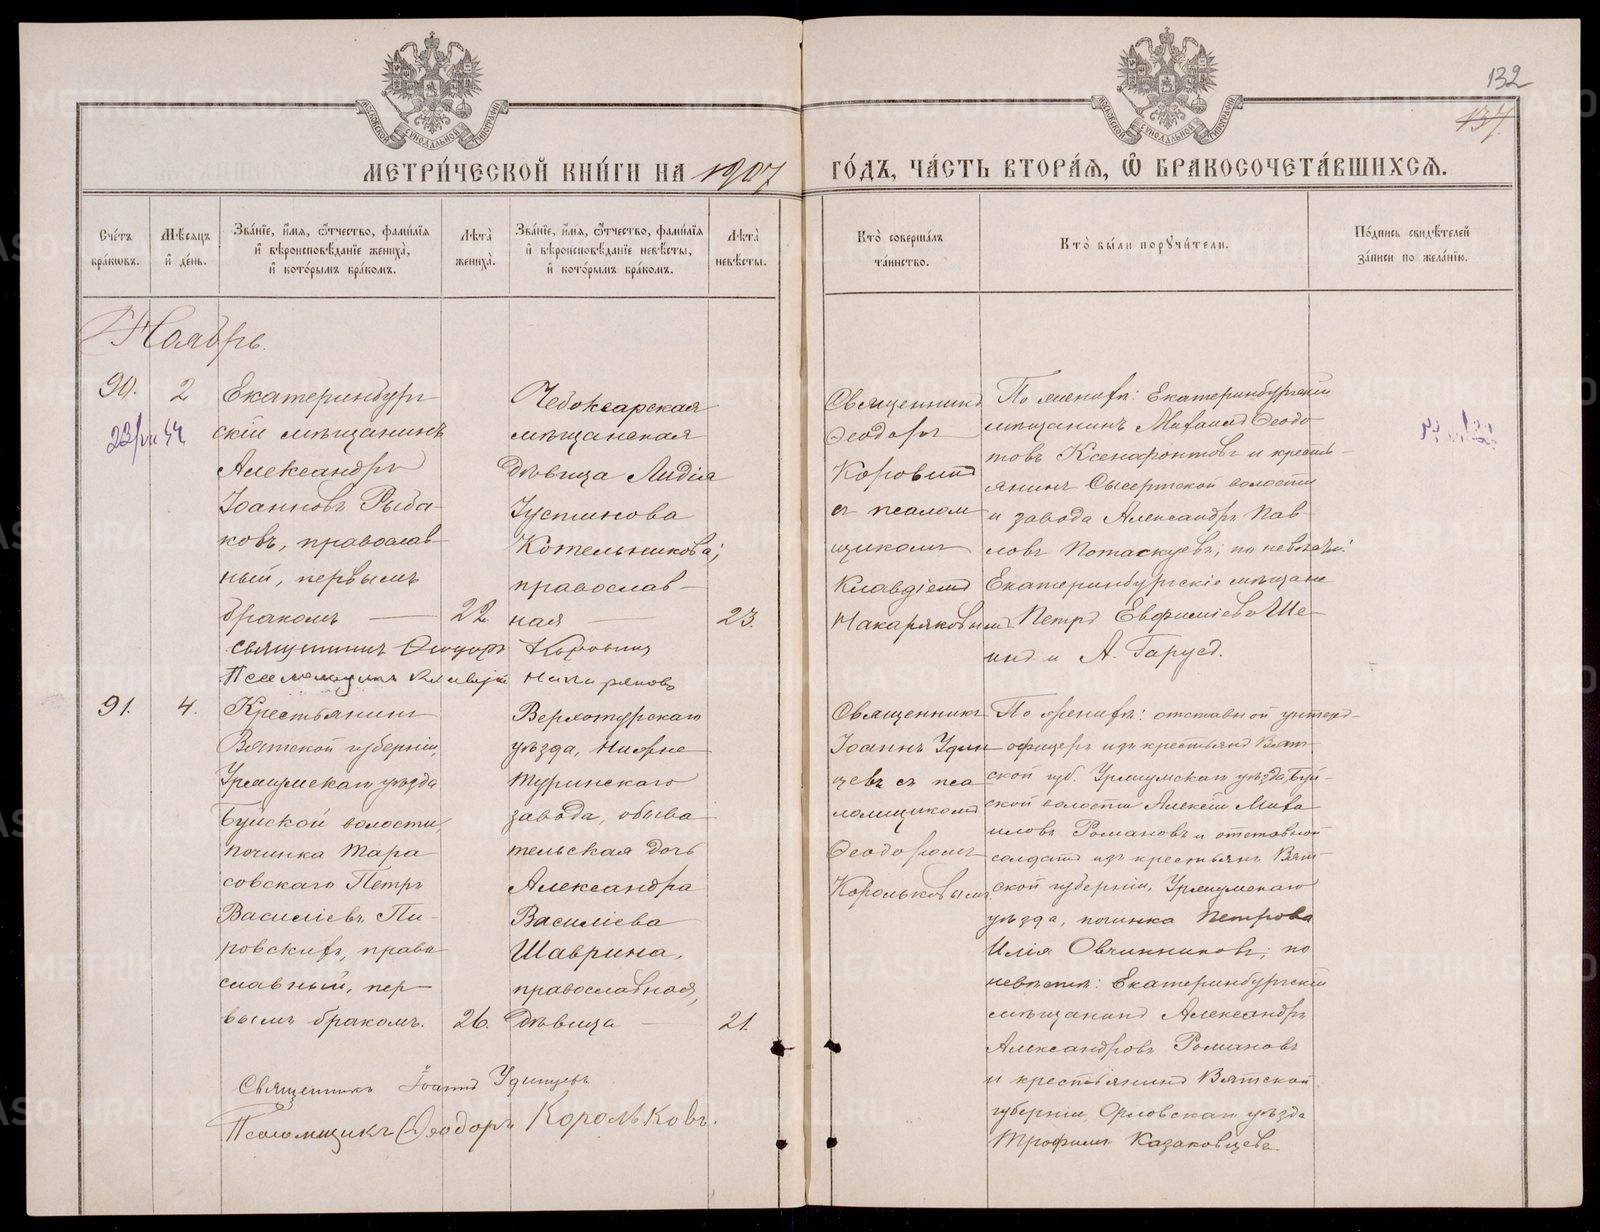 132
134.
МЕТРИ́ЧЕСКОЙ КНИ́ГИ НА 1907
ГО́ДЪ, ЧА́СТЬ ВТОРА́Я, Ѽ БРАКОСОЧЕТА́ВШИХСЯ.
Сче́тъ бра́кѡвъ.
Мѣ́сяцъ и҆ де́нь.
Зва́нїе, и҆́мя, ѻ҆́тчество, фами́лїя
и҆ вѣроисповѣ́данїе жениха̀,
и҆ кото́рымъ бра́комъ.
Лѣ́та̀ жениха̀.
Зва́нїе, и҆́мя, ѻ҆́тчество, фами́лїя
и҆ вѣроисповѣ́данїе невѣ́сты,
и҆ кото́рымъ бра́комъ.
Лѣ́та̀ невѣ́сты.
Кто̀ соверша́лъ
та́инство.
Кто̀ бы́ли порꙋчи́тели.
По́дпись свидѣ́телей
за́писи по жела́нїю.
Ноябрь.
90.
2
Екатеринбург
скій мѣщанинъ
Александръ
Іоанновъ Рыба-
ковъ, православ
ный, первымъ
бракомъ — 22.
Чебоксарская
мѣщанская
дѣвица Лидія
Іустинова
Котельникова;
православ-
ная — 23.
Священникъ
Ѳеодоръ
Коровинъ
съ псалом
щикомъ
Клавдіемъ
Накаряковымъ
По женихѣ: Екатеринбургскій
мѣщанинъ Михаилъ Ѳеодо
товъ Ксенофонтовъ и кресть-
янинъ Сысертской волости
и завода Александръ Пав-
ловъ Потаскуевъ; по невѣстѣ:
Екатеринбургскіе мѣщане
Петръ Евфиміевъ Ше-
инъ и А. Гарусъ.
священникъ Ѳеодоръ Коровинъ
Псаломщикъ Клавдій Накаряковъ
91.
4.
Крестьянинъ
Вятской губерніи,
Уржумскаго уѣзда
Буйской волости,
починка Тара
совскаго Петръ
Василіевъ Пи-
ровскихъ, право
славный, пер-
вымъ бракомъ. 26.
Верхотурскаго
уѣзда, Нижне
туринскаго
завода, обыва
тельская дочь
Александра
Василіева
Шаврина,
православная,
дѣвица — 21.
Священникъ
Іоаннъ Удин
цевъ съ пса
ломщикомъ
Ѳеодоромъ
Корольковымъ
По женихѣ: отставной унтеръ-
офицеръ изъ крестьянъ Вят-
ской губ. Уржумскаго уѣзда, Буй-
ской волости Алексій Миха
иловъ Романовъ и отставной
солдатъ изъ крестьянъ Вят-
ской губерніи, Уржумскаго
уѣзда, починка Петрова
Илія Овчинниковъ; по
невѣстѣ: Екатеринбургскій
мѣщанинъ Александръ
Александровъ Романовъ
и крестьянинъ Вятской
губерніи, Орловскаго уѣзда
Трофимъ Казаковцевъ
Священникъ Іоаннъ Удинцевъ
Псаломщикъ Ѳеодоръ Корольковъ.